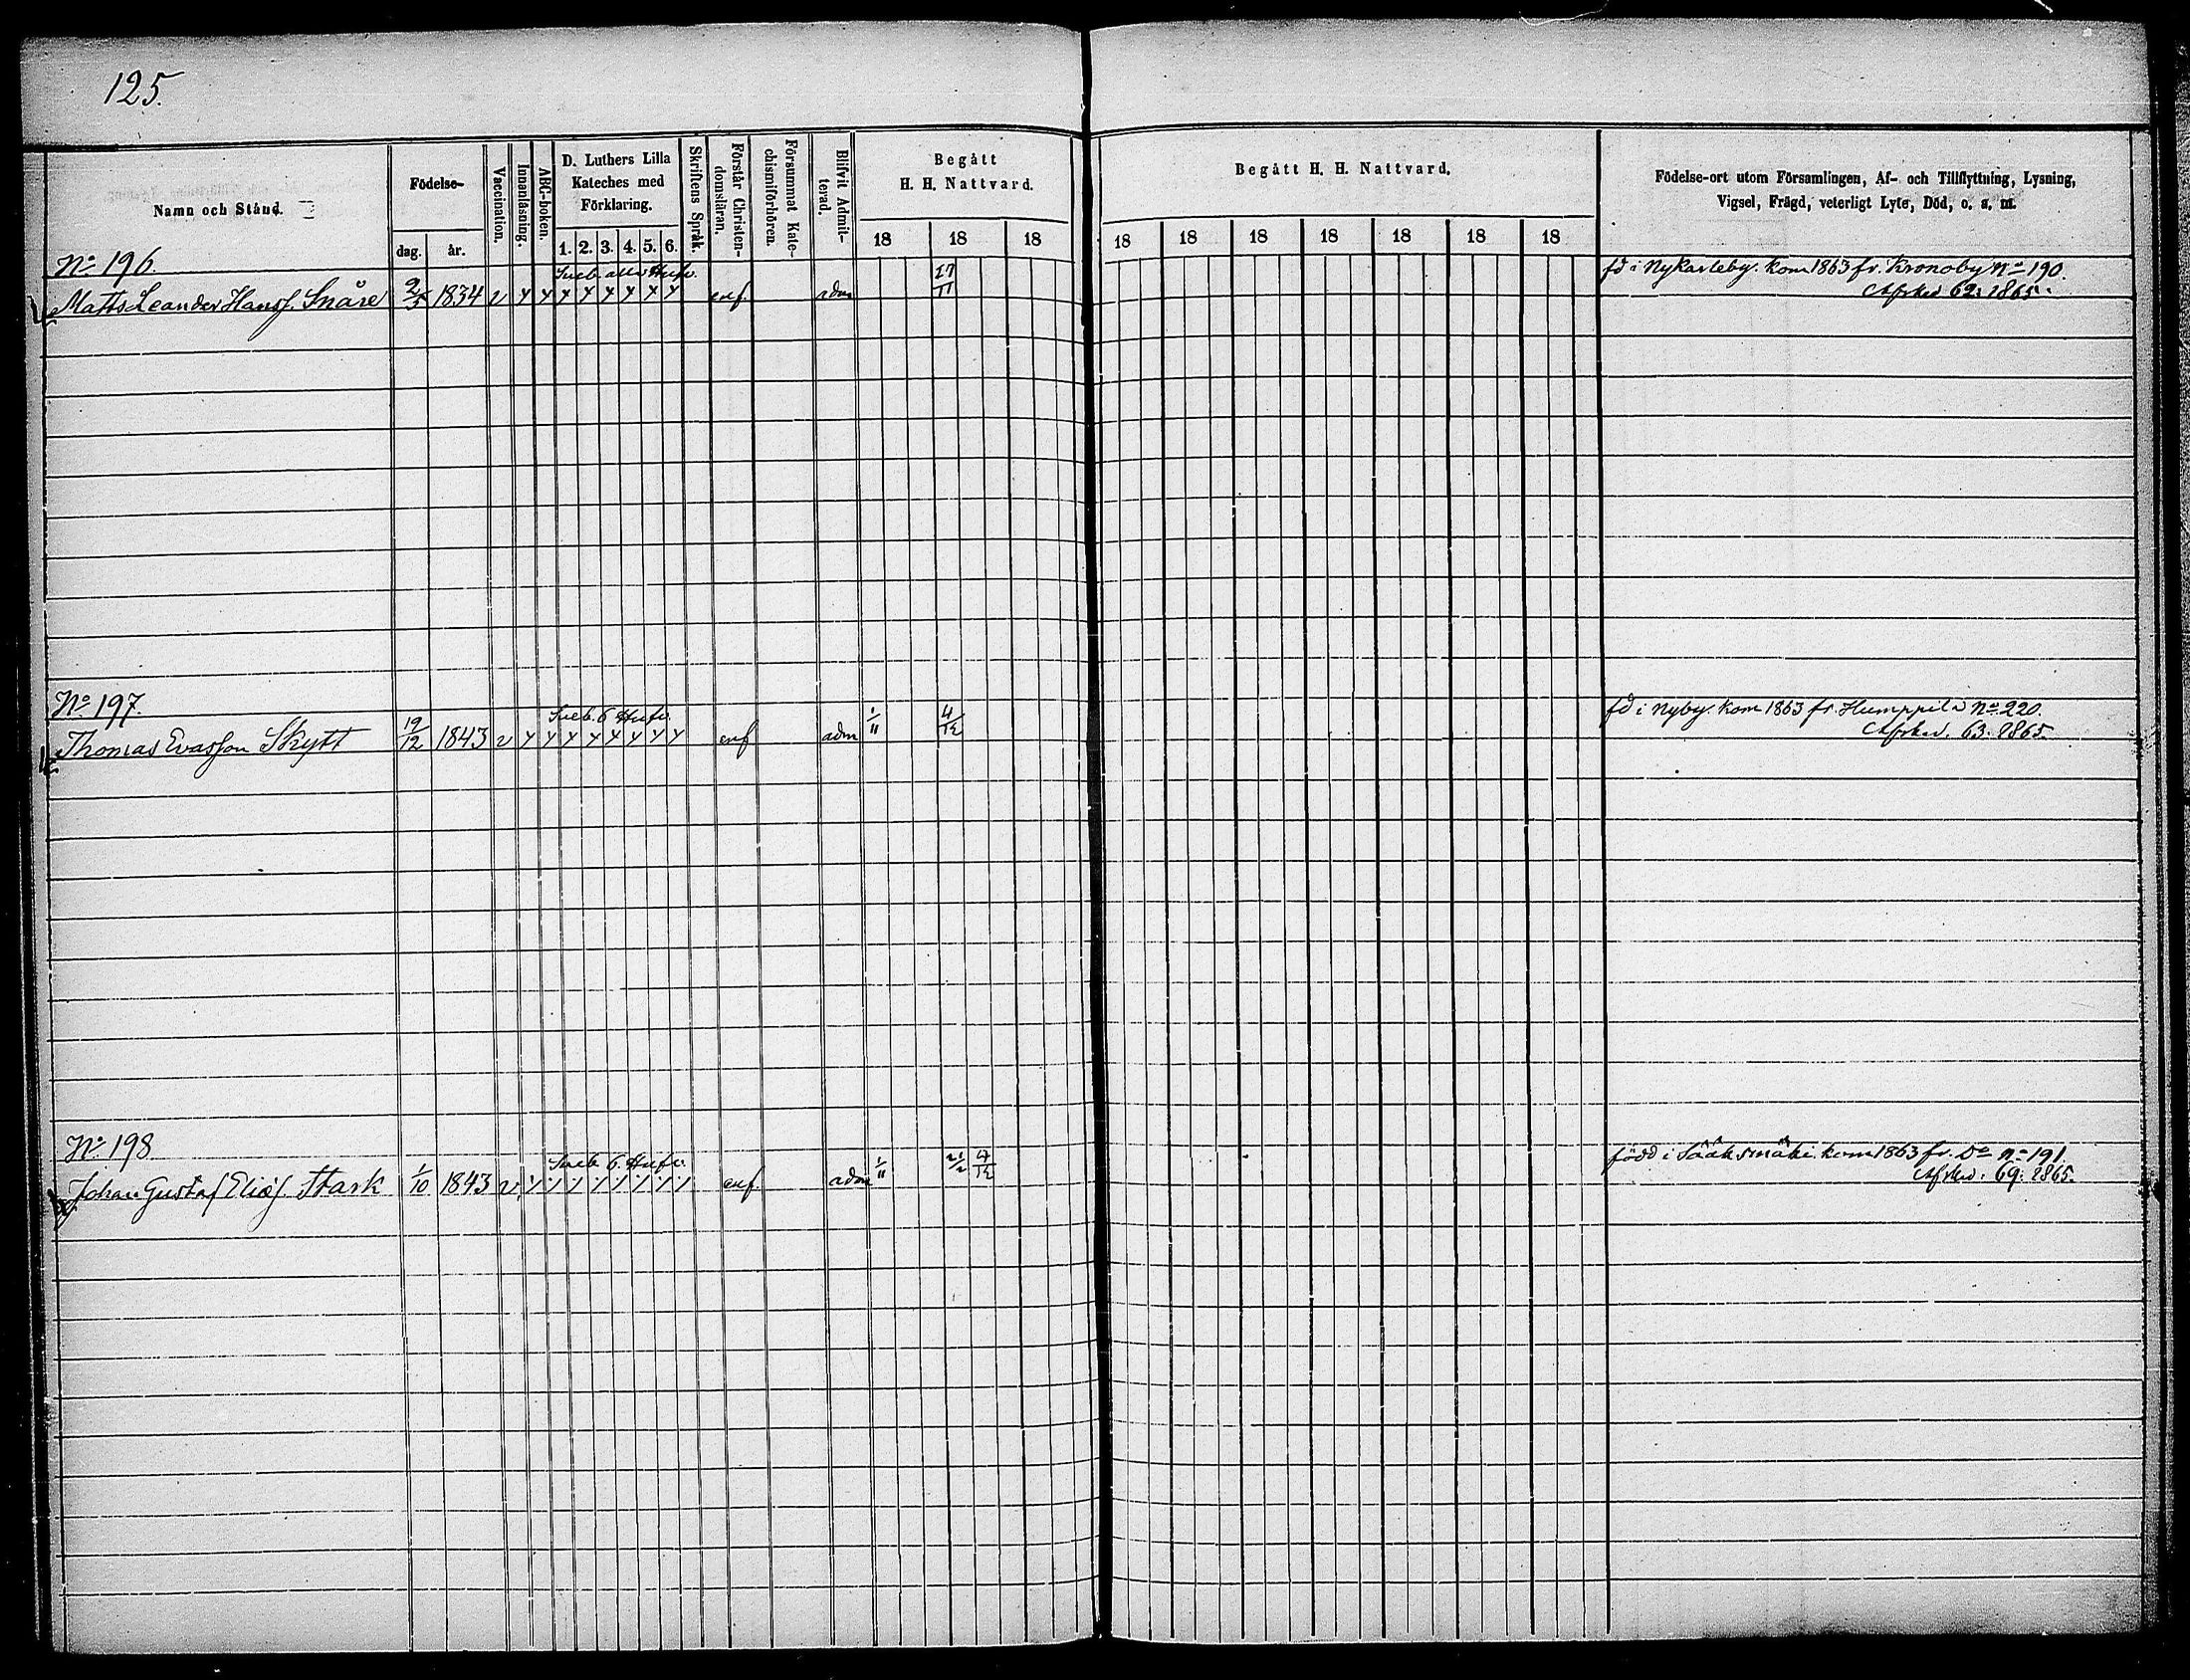 125.
Namn och Stånd.
Födelse-
dag.
år.
Vaccination.
Innanläsning.
ABC-boken.
D. Luthers Lilla
Kateches med
Förklaring.
1. 2. 3. 4. 5. 6.
Skriftens Språk.
Förstår Christen-
domsläran.
Försummat Kate-
chismiförhören.
Blifvit Admit-
terad.
Begått
H. H. Nattvard.
18 18 18
Begått H. H. Nattvard.
18 18 18 18 18 18 18
Födelse-ort utom Församlingen, Af- och Tillflyttning, Lysning,
Vigsel, Frägd, veterligt Lyte, Död, o. s. m.
No 196.
Sveb. alla Hufv. 27/11 fd i Nykarleby. kom 1863 fr. Kronoby No 190.
Matts Leander Hansf. Snåre 2/5 1834 v enf. adm Afsked 62: 1865.
No 197.
Sveb. 6 Hufv. 1/11 4/12 fd i Nyby. kom 1863 fr. Humppila No 220.
Thomas Evasson Skytt 19/12 1843 v enf adm Afsked. 63: 1865.
No 198
Sveb. 6. Hufv. 1/11 21/2 4/12 född i Sääksmäki. kom 1863 fr. Do No 191.
Johan Gustaf Eliasf. Stark 1/10 1843 v enf. adm Afsked: 69: 1865.